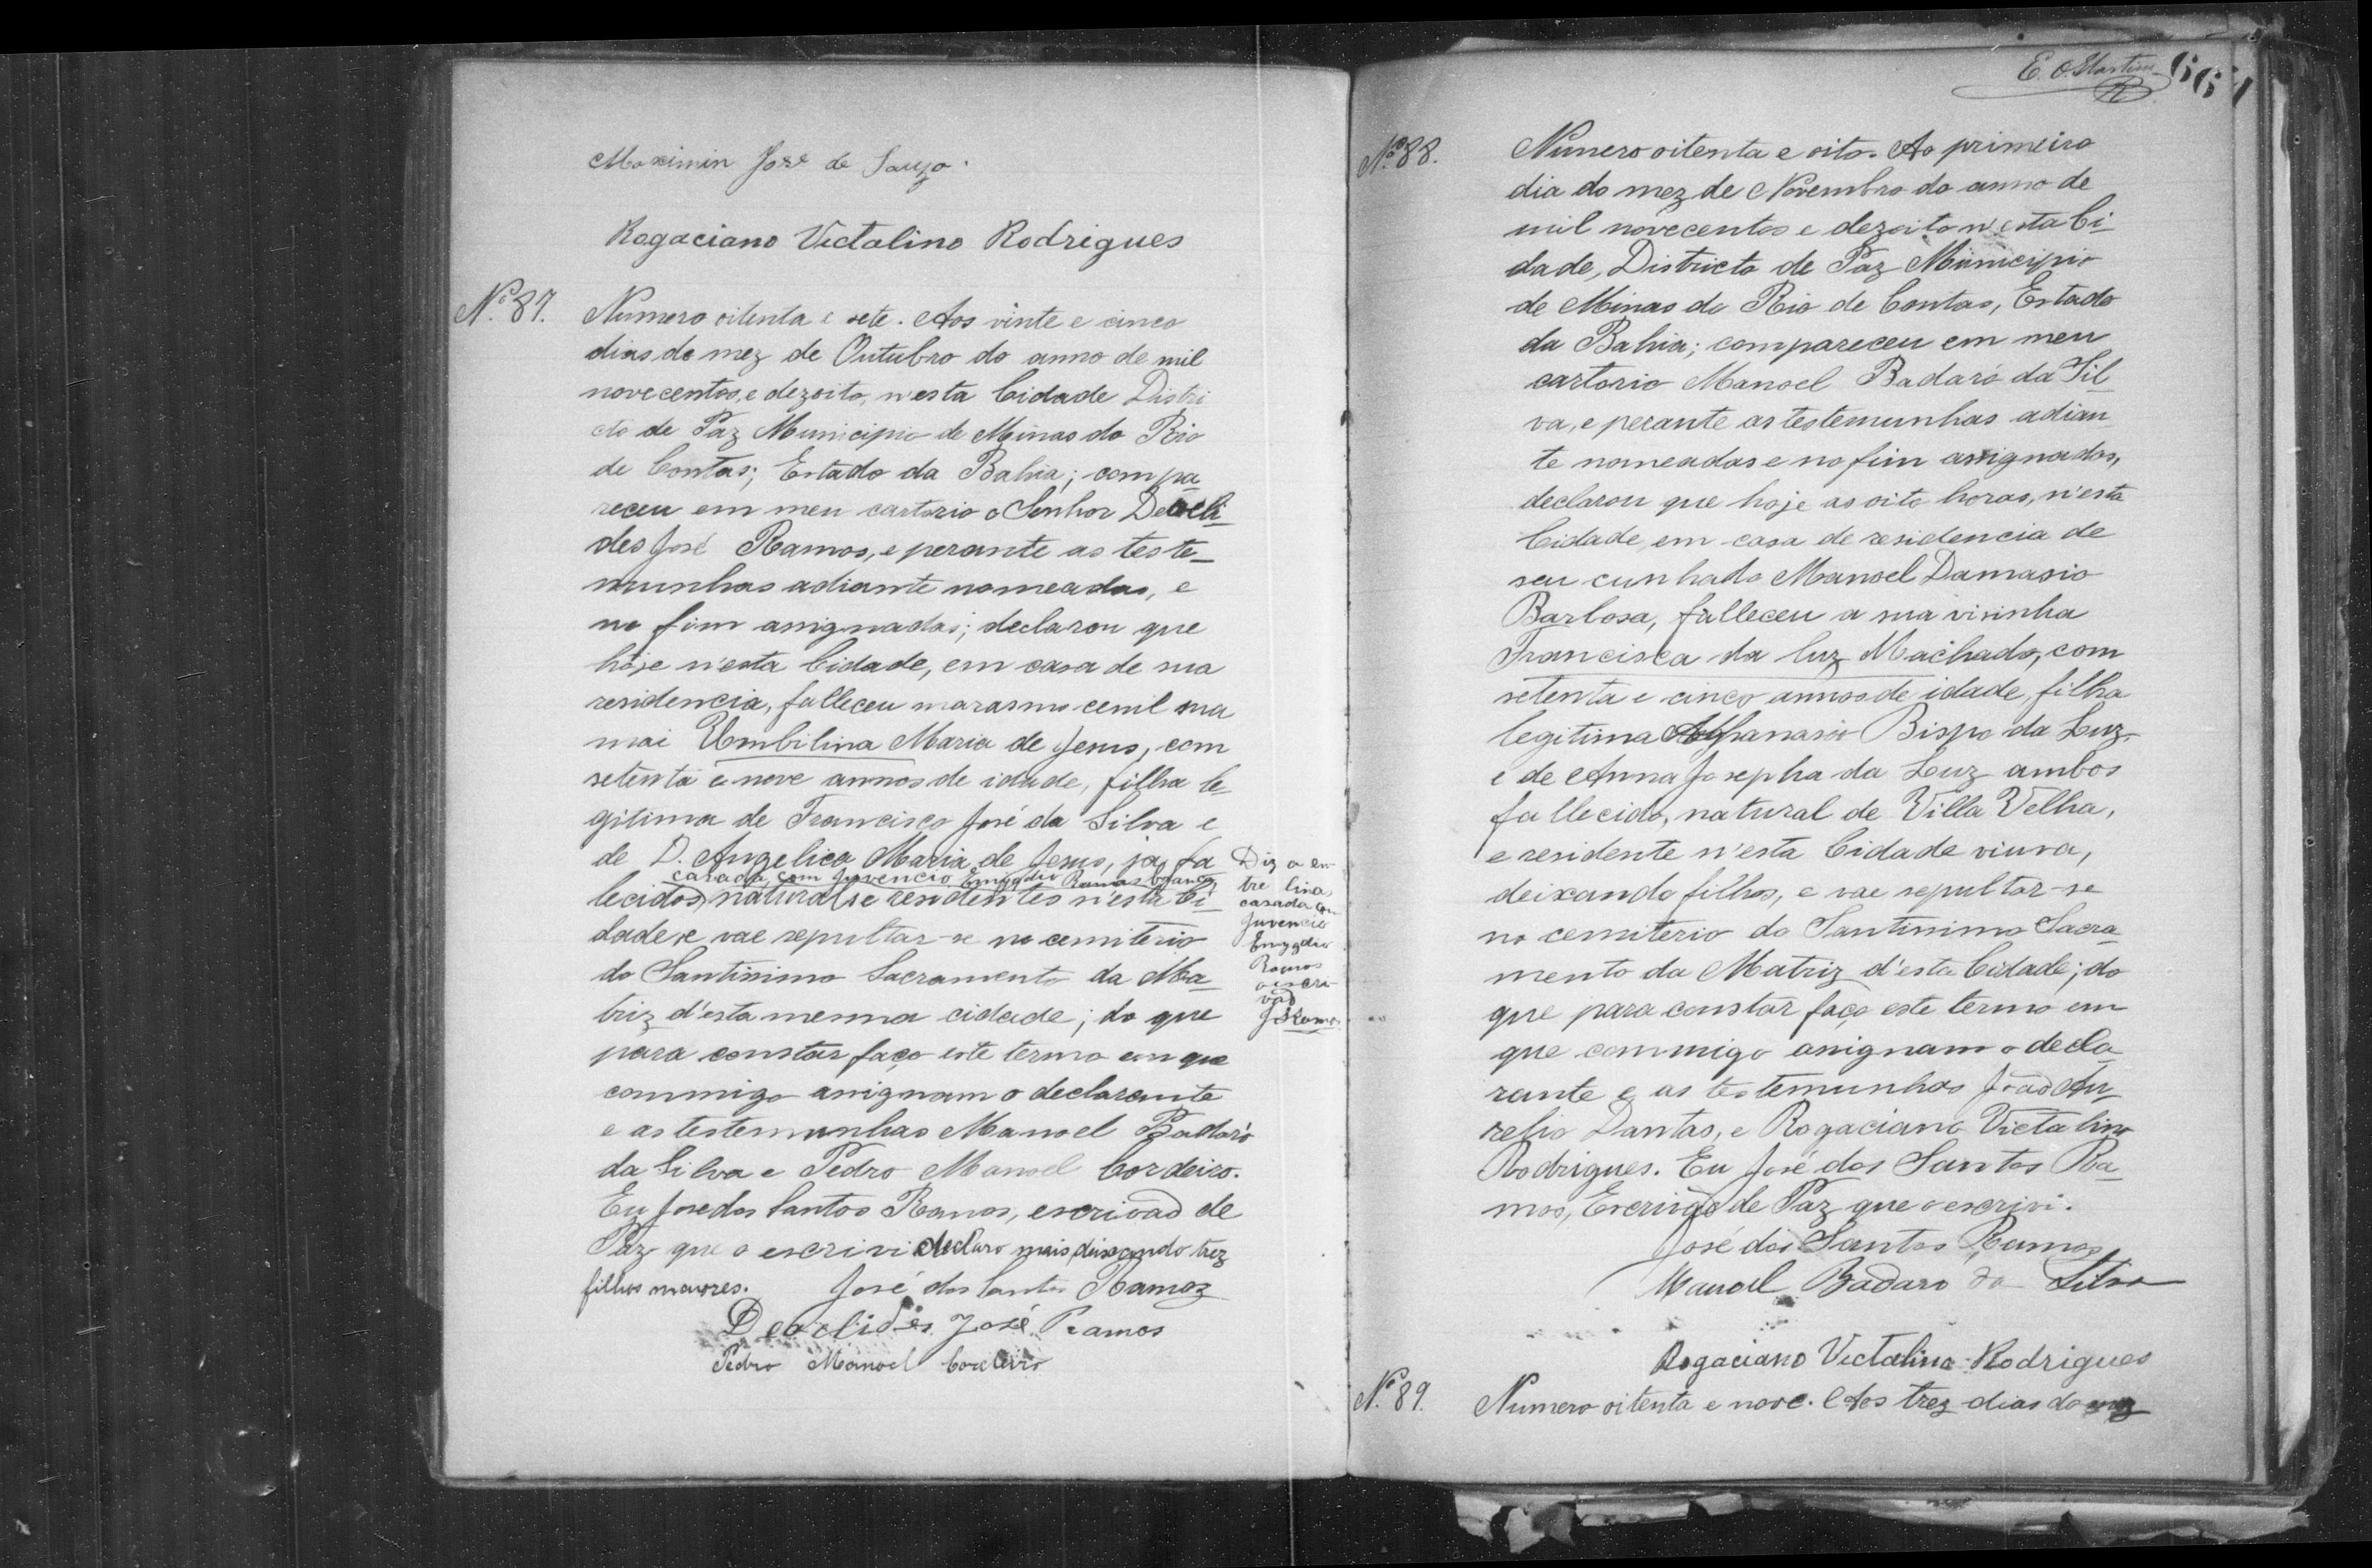 Maximin José de Souza.
Rogaciano Victalino Rodrigues
Nº 87.
Numero oitenta e sete. Aos vinte e cinco
dias do mez de Outubro do anno de mil
novecentos, e dezoito, n'esta Cidade Distri
cto de Paz Municipio de Minas do Rio
de Contas; Estado da Bahia; compa
receu em meu cartorio o Senhor Deocli-
des José Ramos, e perante as teste-
munhas adiante nomeadas, e
no fim assignadas; declarou que
hoje n'esta Cidade, em casa de sua
residencia, falleceu marasmo cenil sua
mai Umbilina Maria de Jesus, com
setenta e nove annos de idade, filha le-
gitima de Francisco José da Silva e
de D. Angelica Maria de Jesus, ja fa
casada com Juvencio Emygdio Ramos branca,
lecidos, natural e residentes n'esta Ci-
dade, e vae sepultar-se no cemiterio
do Santissimo Sacramento da Ma-
triz d'esta mesma cidade; do que
para constar faço este termo em que
commigo assignam o declarante
e as testemunhas Manoel Badaró
da Silva e Pedro Manoel Cordeiro.
Eu José dos Santos Ramos, escrivaõ de
Paz que o escrivi declaro mais, deixando trez
filhos maiores. José dos Santos Ramos
Deoclides José Ramos
Pedro Manoel Cordeiro
Diz a en-
tre lina,
casada com
Juvencio
Emygdio
Ramos
o escri-
vaõ
JSRamos
E. O. Martins
667
Nº 88.
Numero oitenta e oito. Ao primeiro
dia do mez de Novembro do anno de
mil novecentos e dezoito n'esta Ci-
dade, Districto de Paz Municipio
de Minas do Rio de Contas, Estado
da Bahia; compareceu em meu
cartorio Manoel Badaró da Sil
va, e perante as testemunhas adian
te nomeadas e no fim assignados,
declarou que hoje as oito horas, n'esta
Cidade, em casa de residencia de
seu cunhado Manoel Damasio
Barbosa, falleceu a sua visinha
Francisca da Luz Machado, com
setenta e cinco annos de idade, filha
legitima Bispo da Luz
e de Anna Josepha da Luz ambos
fallecido, natural de Villa Velha,
e residente n'esta Cidade viuva,
deixando filhos, e vae sepultar-se
no cemiterio do Santissimo Sacra-
mento da Matriz d'esta Cidade; do
que para constar faço este termo em
que commigo assignam o decla-
rante e as testemunhas João Au-
relio Dantas, e Rogaciano Victalino
Rodrigues. Eu José dos Santos Ra-
mos, Escrivão de Paz que o escrivi.
José dos Santos Ramos
Manoel Badaro da Silva
Rogaciano Victalino Rodrigues
Nº 89.
Numero oitenta e nove. Aos trez dias do mez